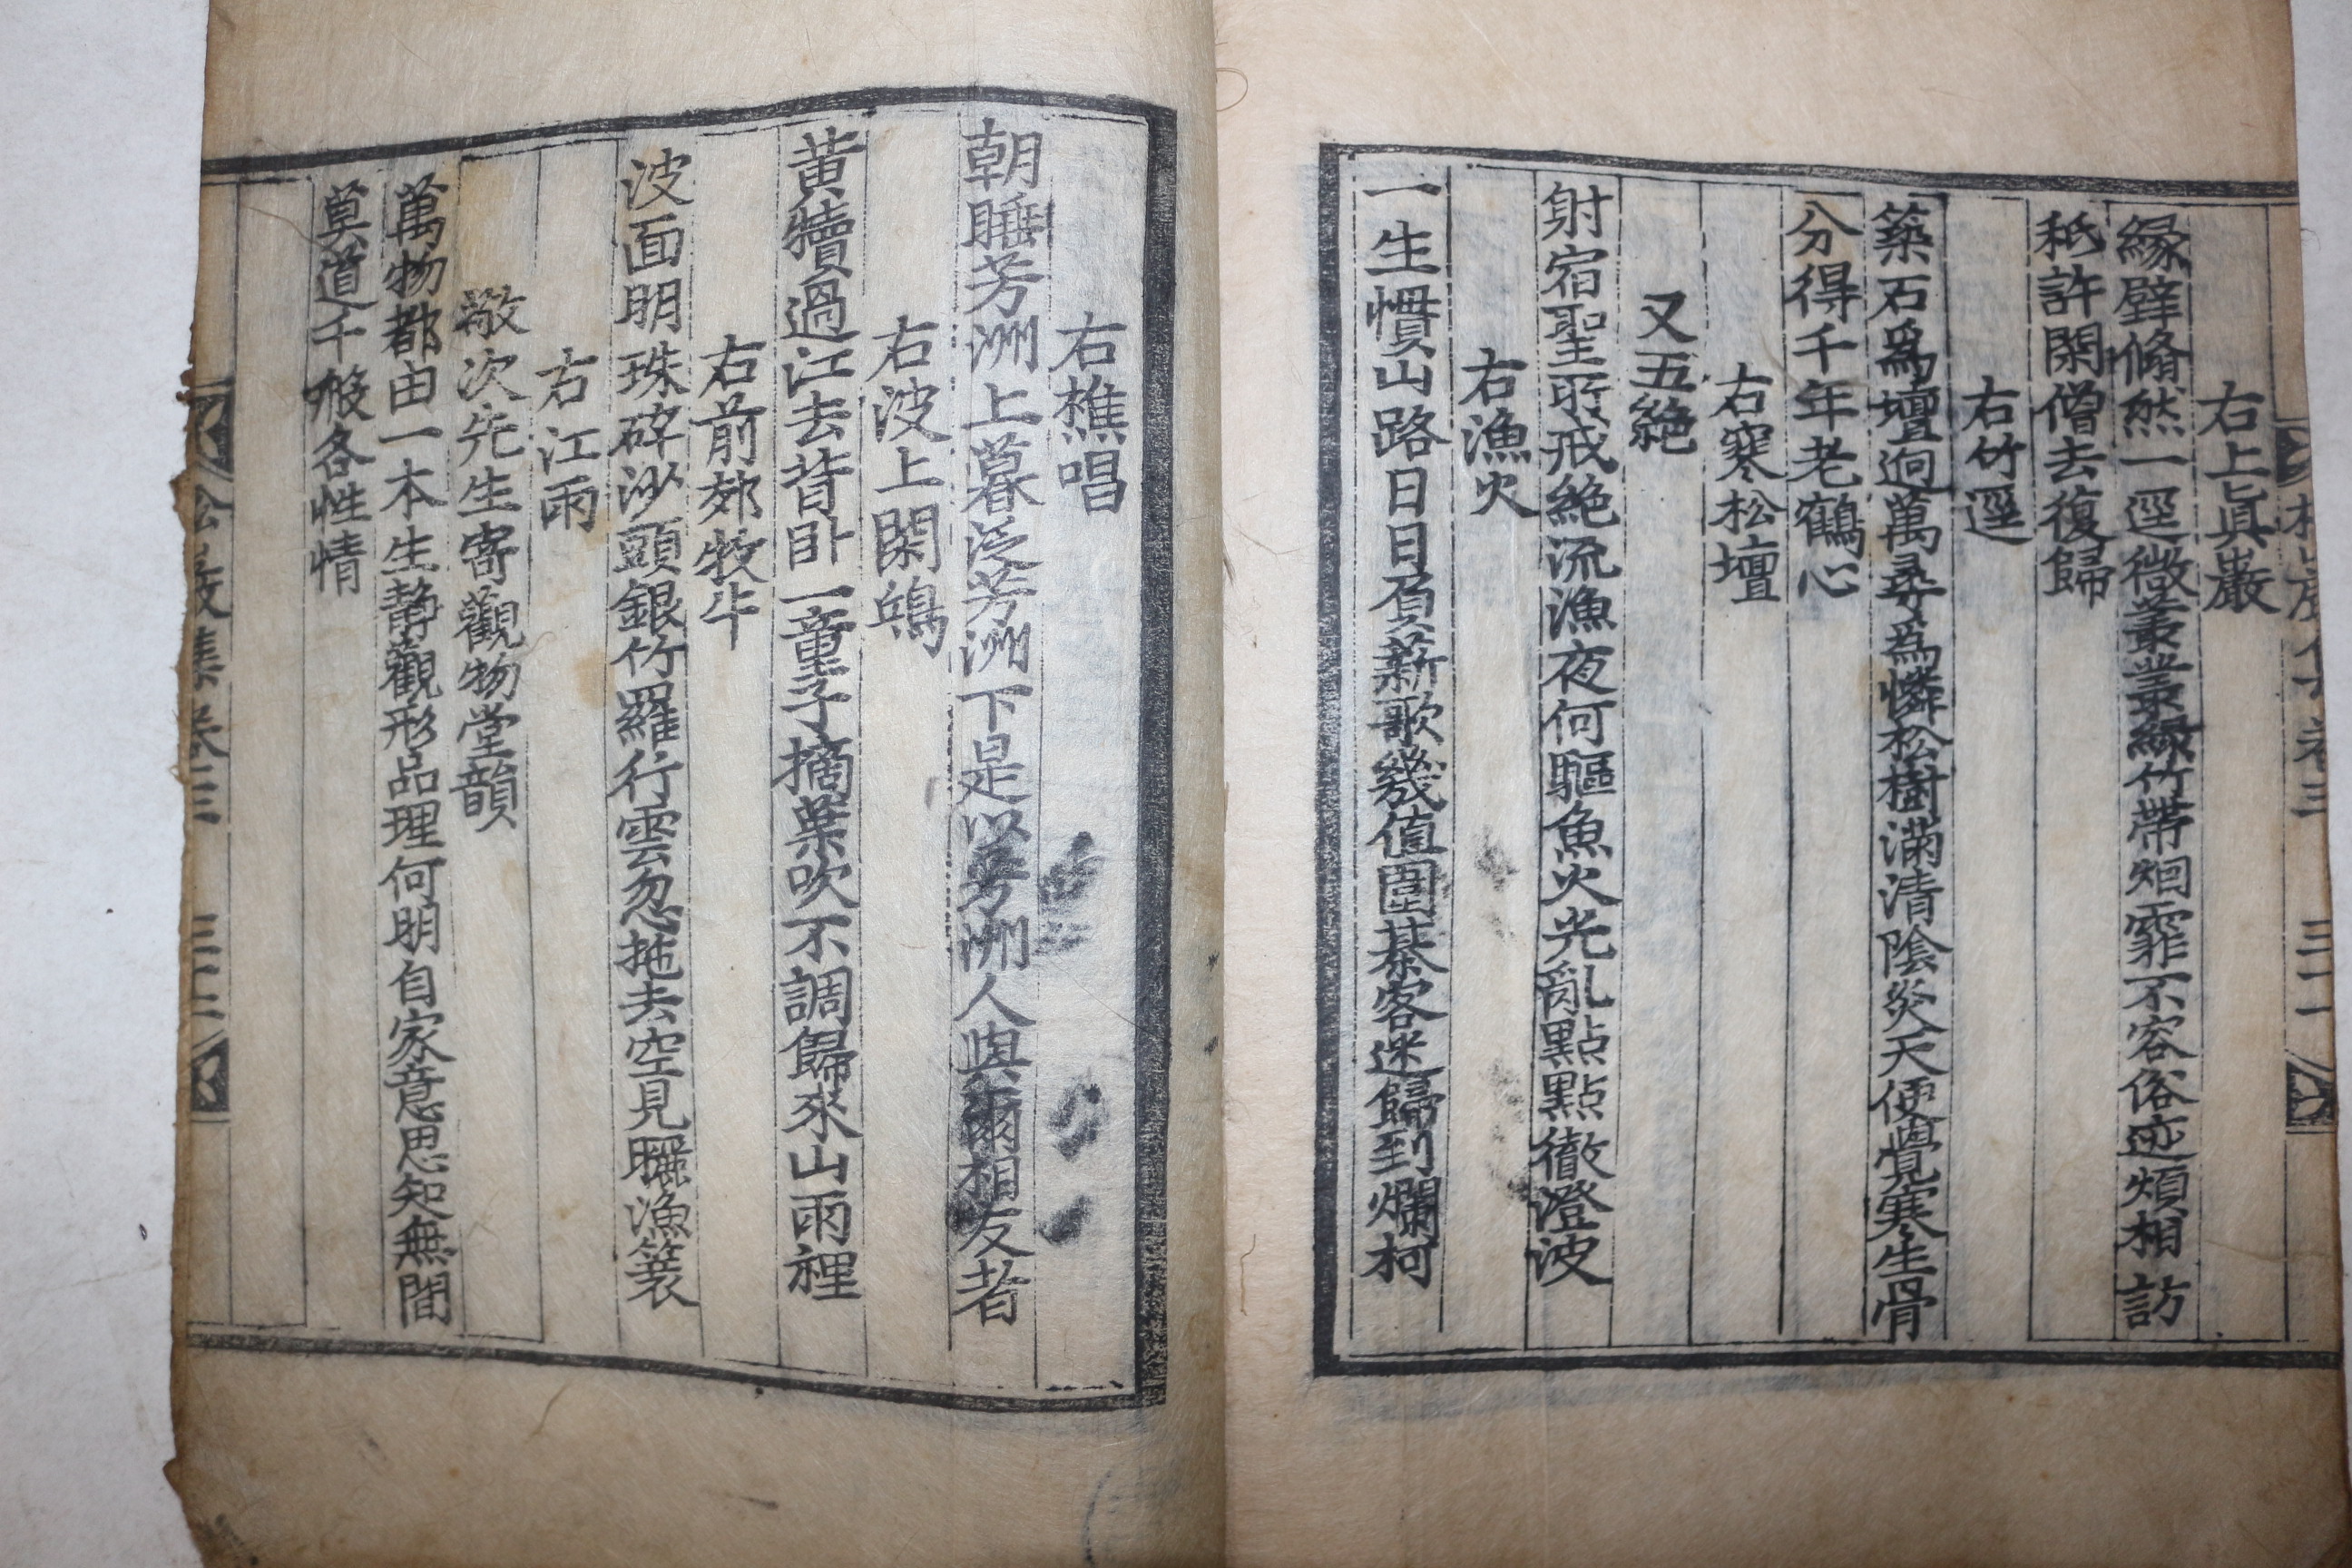 右上眞巖
緣壁翛然一逕微叢叢綠竹帶烟霏不容俗迹煩相訪
秪許閑僧去復歸
右竹逕
築石爲壇逈萬尋爲憐松樹滿清陰炎天便覺寒生骨
分得千年老鶴心
右寒松壇
又五絶
射宿聖所戒絶流漁夜何驅魚火光亂點點徹澄波
右漁火
一生慣山路日日負薪歌幾值圍碁客迷歸到爛柯
右樵唱
朝睡芳洲上暮泛芳洲下是以芳洲人與爾相友者
右波上閑鴎
黃犢過江去背臥一童子摘葉吹不調歸來山雨裡
右前郊牧牛
波面明珠碎沙頭銀竹羅行雲忽拖去空見曬漁簑
右江雨
敬次先生寄觀物堂韻
萬物都由一本生靜觀形品理何明自家意思知無間
莫道千般各性情
松巖文集卷三 三十二